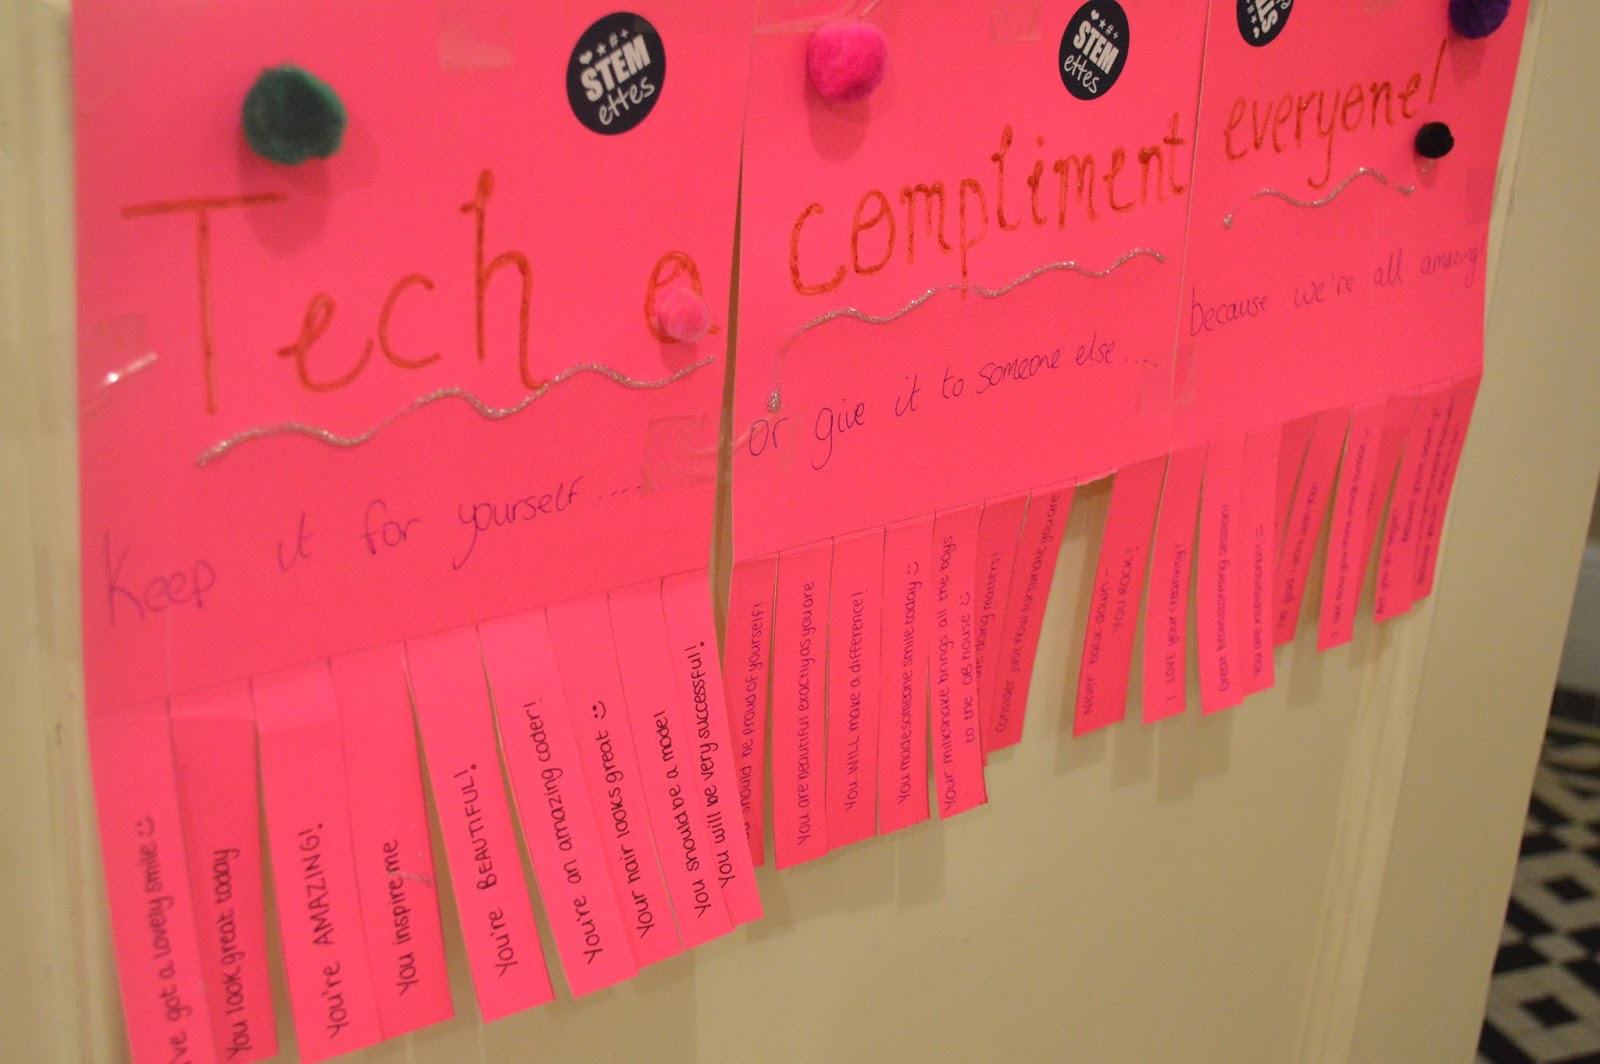 STEM
ettes
STEM
ettes
ST
Tech a compliment everyone!
Keep it for yourself ....
or give it to someone else ....
because we're all amazing!
've got a lovely smile
You look great today
You're AMAZING!
You inspire me
You're BEAUTIFUL!
You're an amazing coder!
Your hair looks great
You should be a model
You will be very successful!
should be proud of yourself!
You are beautiful exactly as you are
You WILL make a difference!
You made someone smile today
Your milkshake brings all the boys
to the OB house
doing matters!
Consider just how fortunate you are
Never back down -
YOU ROCK!
I LOVE your creativity!
Great brainstorming session!
You are inspirational!
I'm glad I work with you